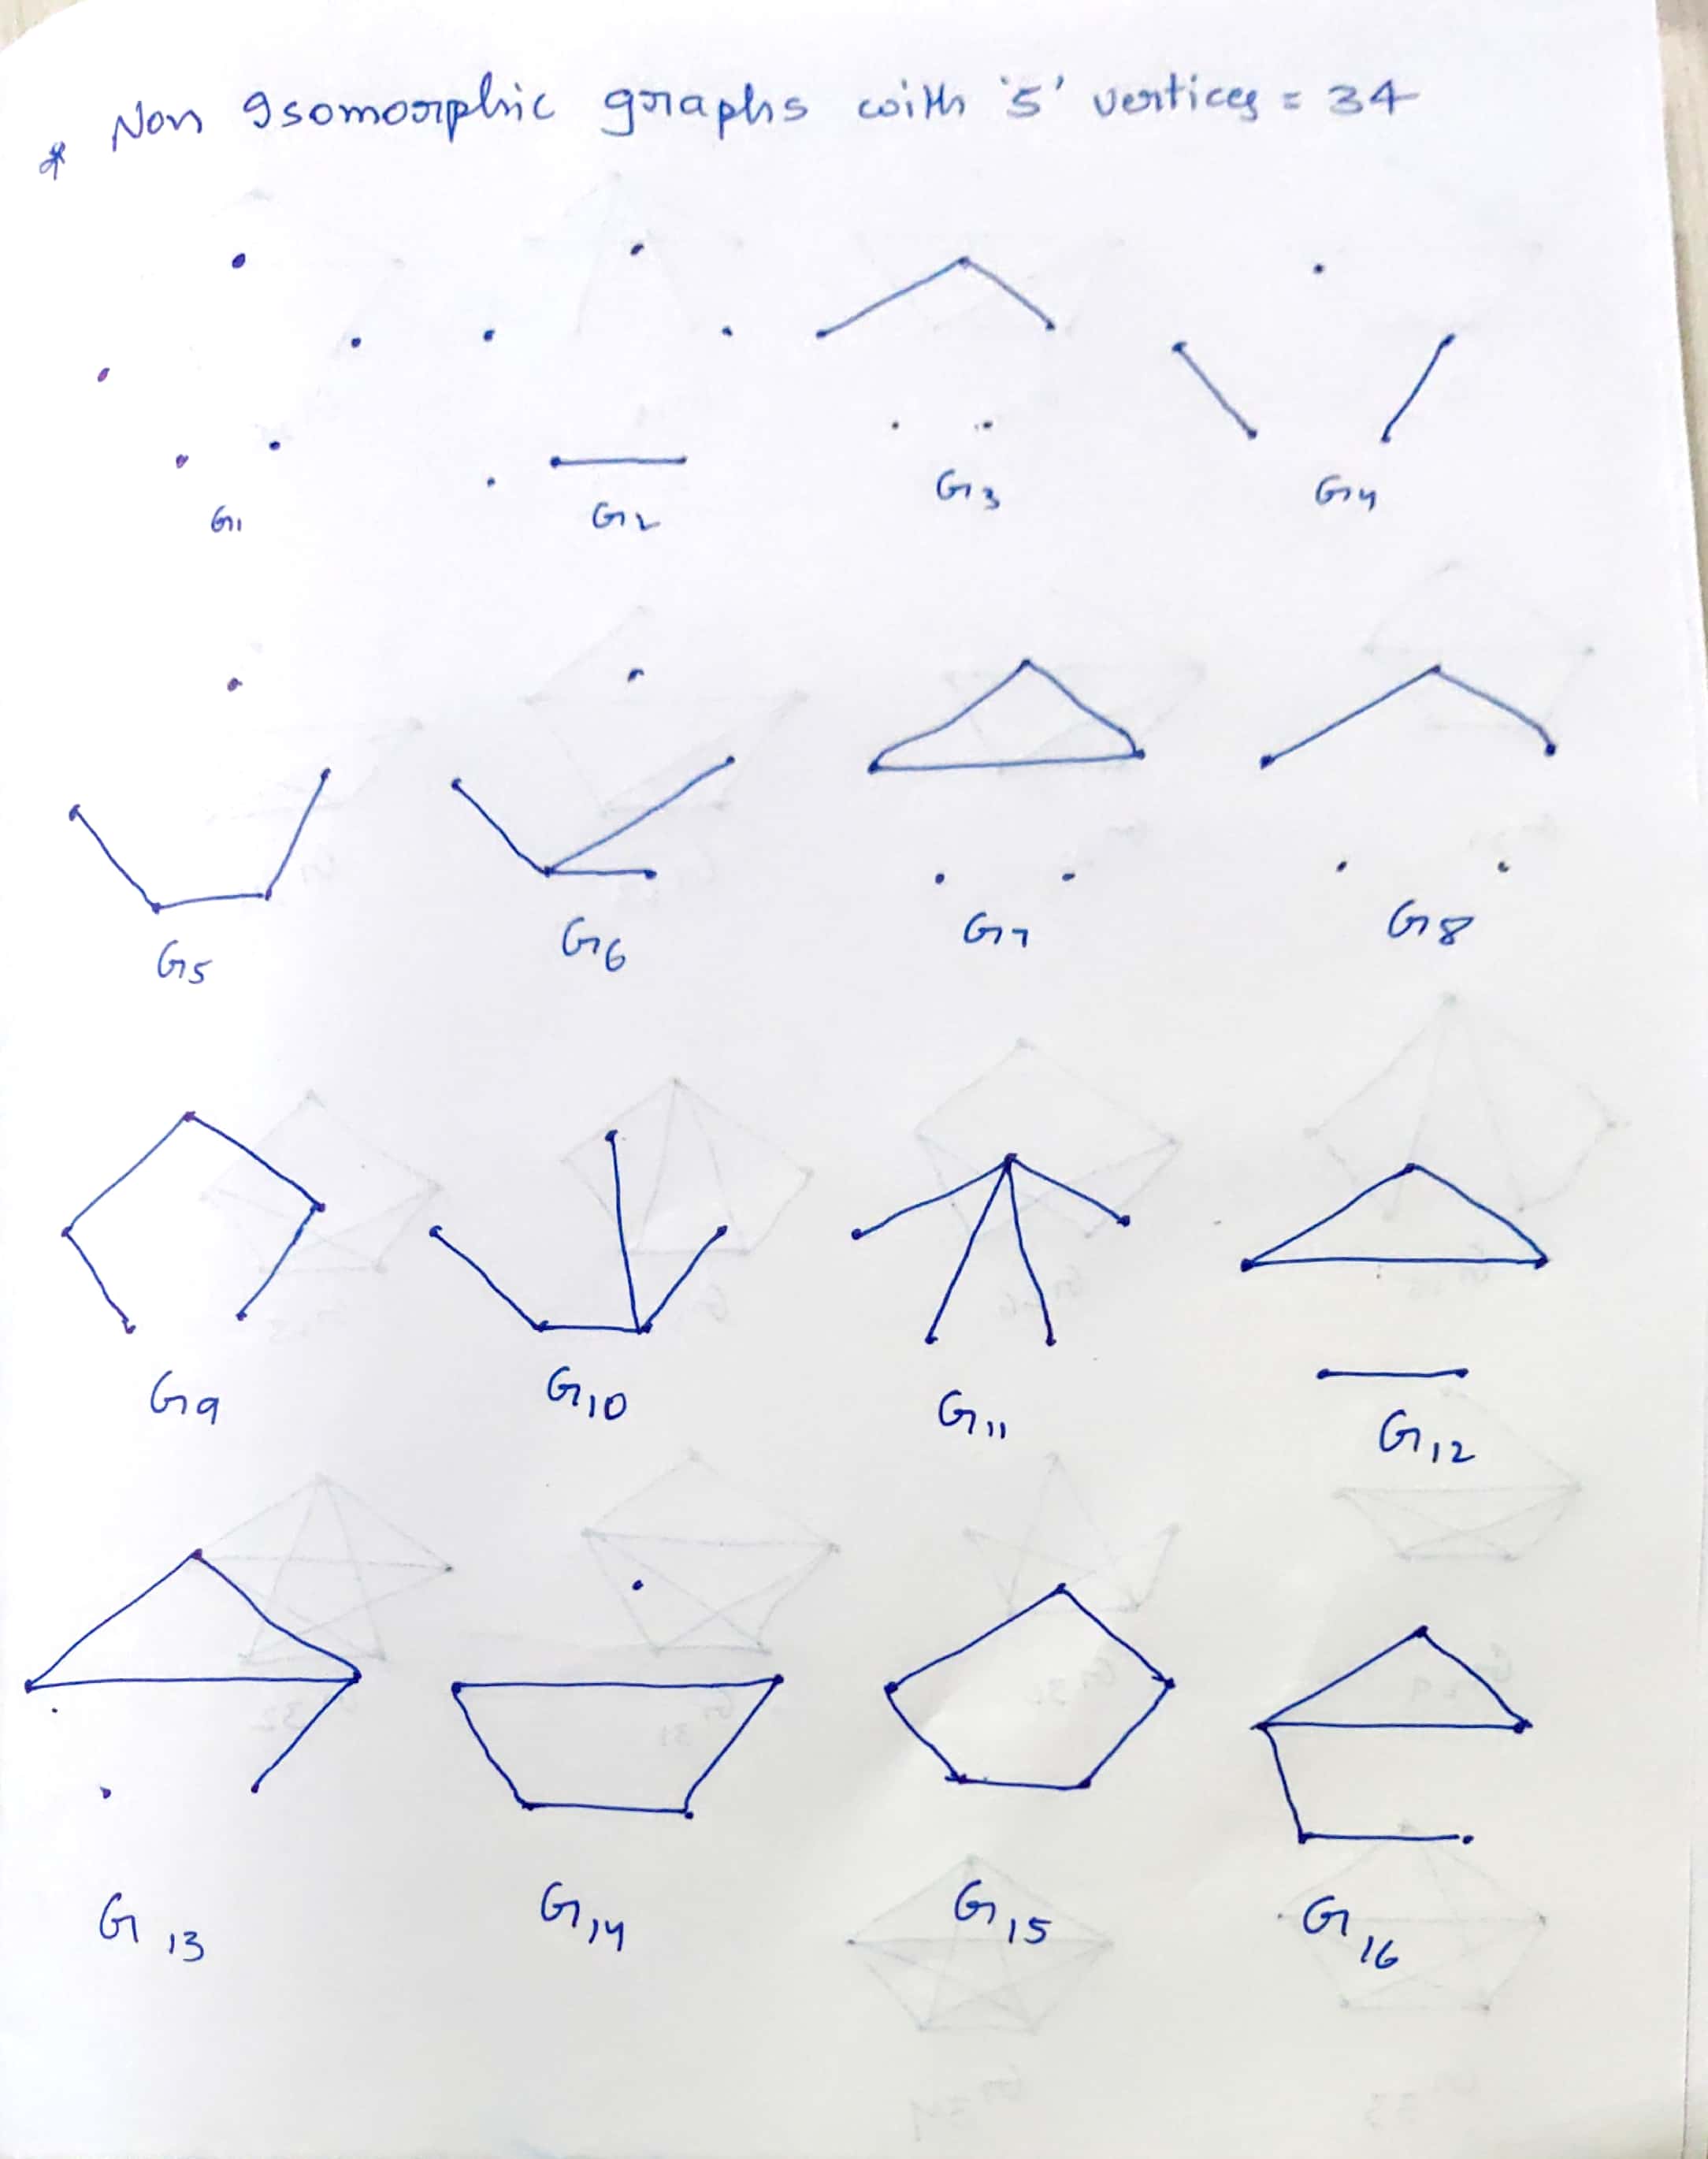 * Non Isomorphic graphs with '5' vertices = 34
G1 G2 G3 G4
G5 G6 G7 G8
G9 G10 G11 G12
G13 G14 G15 G16